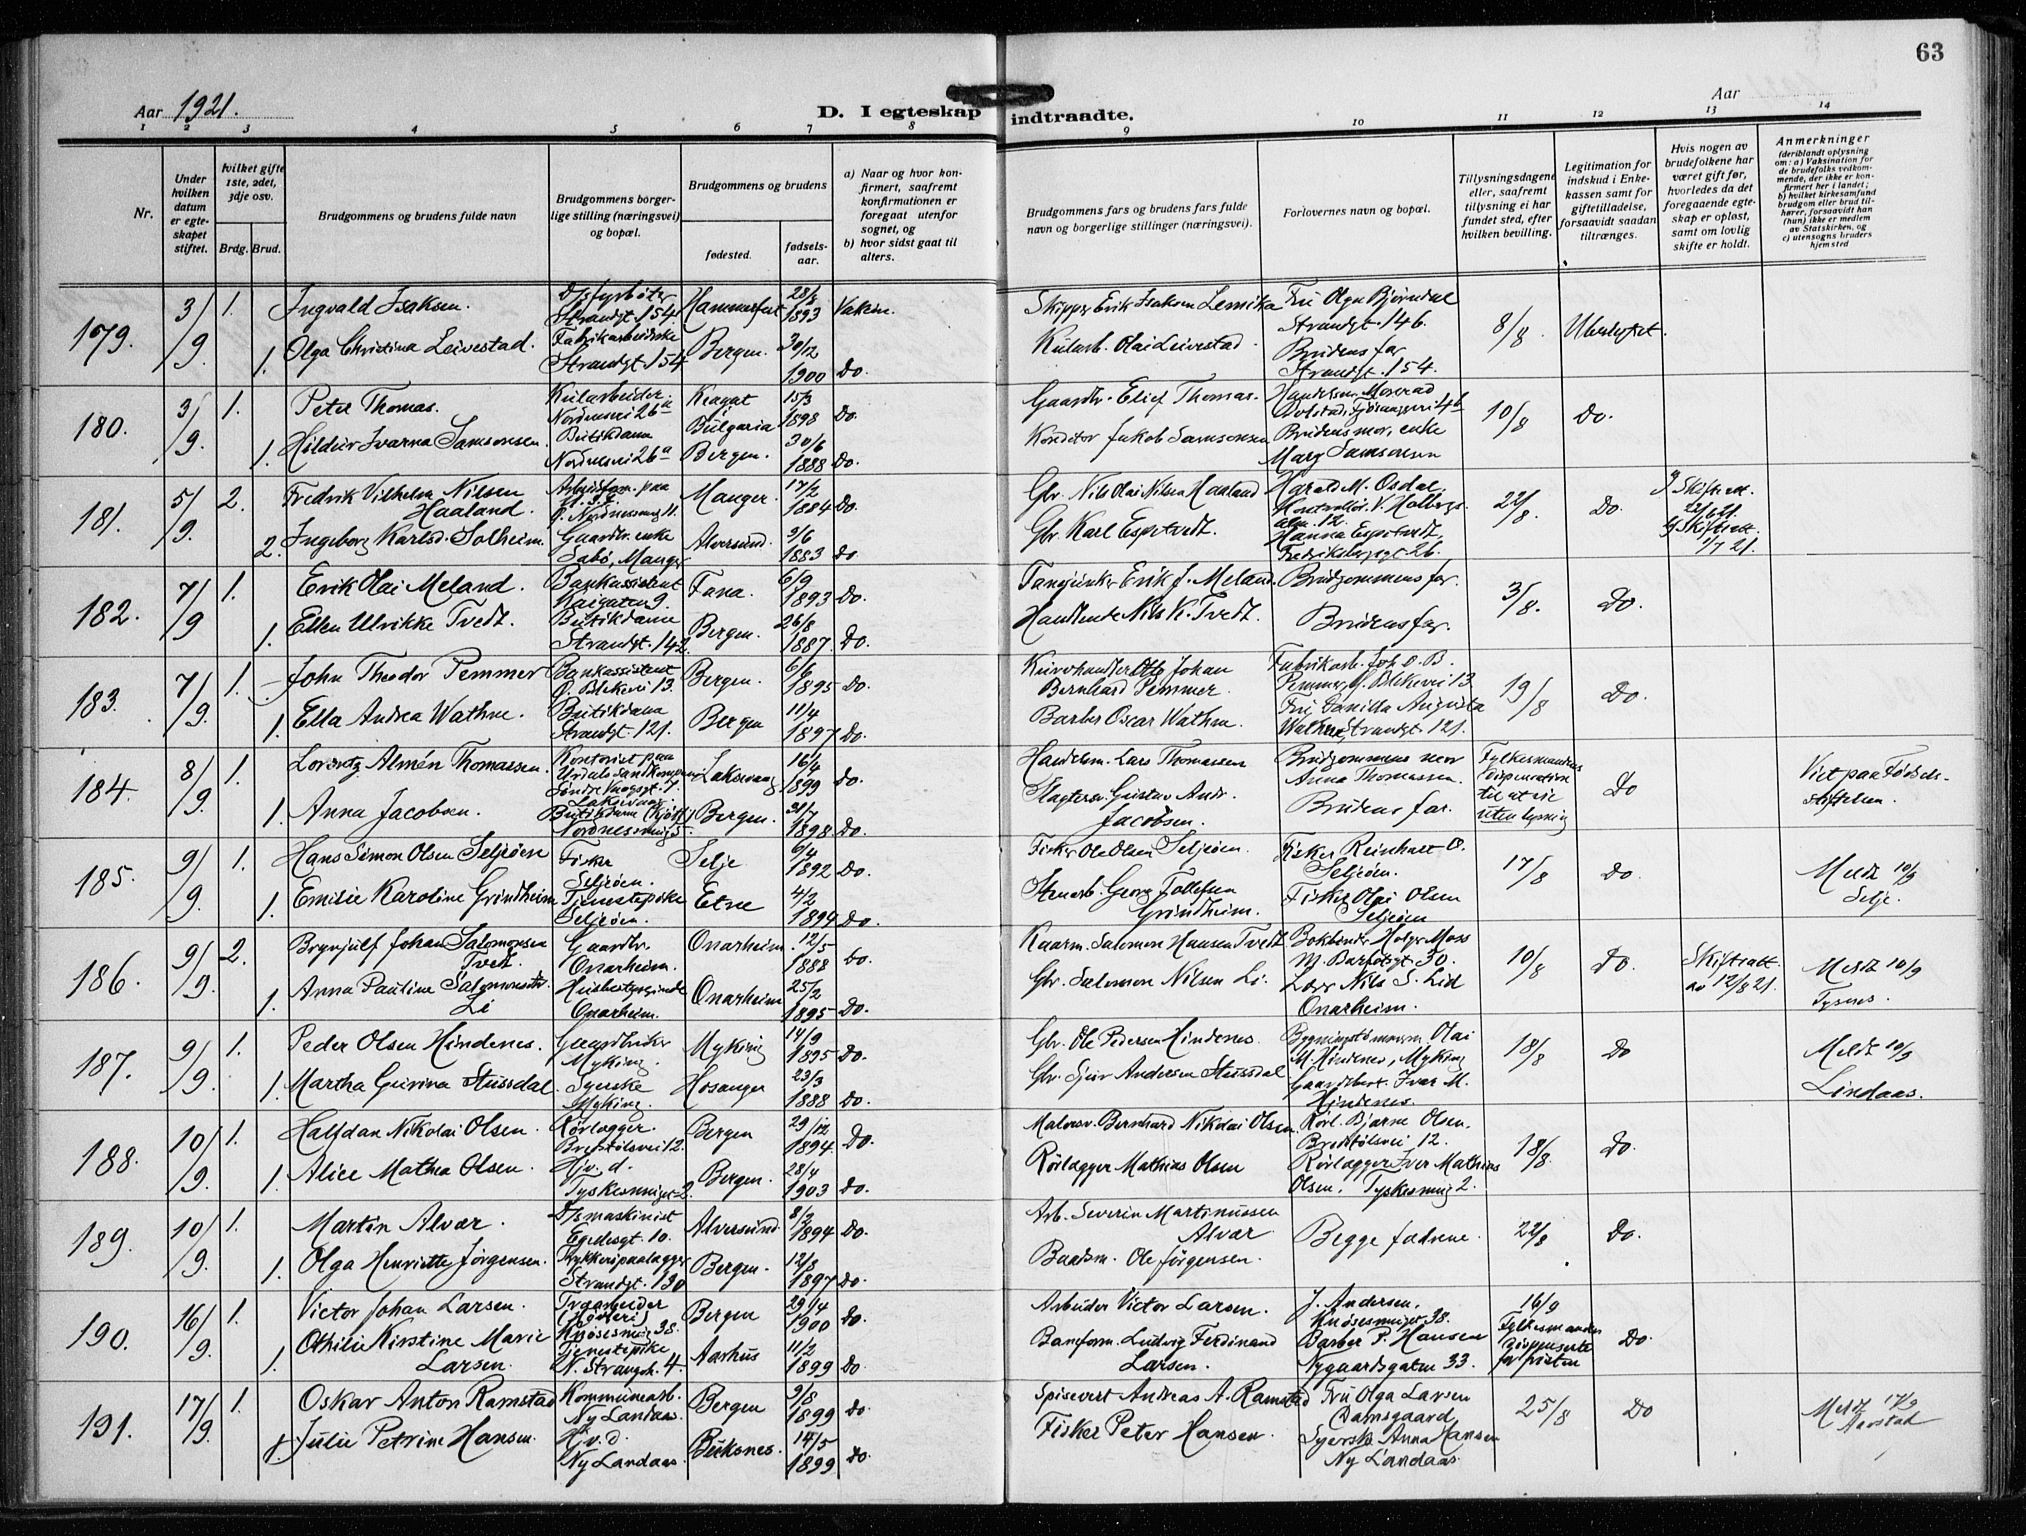 63
Aar 1921.
D. I egteskap indtraadte.
Aar
1 2 3 4 5 6 7 8 9 10 11 12 13 14
Nr.
Under hvilken datum er egteskapet stiftet.
hvilket gifte 1ste, 2det, 3dje osv.
Brdg. Brud.
Brudgommens og brudens fulde navn
Brudgommens borgerlige stilling (næringsvei) og bopæl.
Brudgommens og brudens
fødested.
fødselsaar.
a) Naar og hvor konfirmert, saafremt konfirmationen er foregaat utenfor sognet, og
b) hvor sidst gaat til alters.
Brudgommens fars og brudens fars fulde navn og borgerlige stillinger (næringsvei).
Forlovernes navn og bopæl.
Tillysningsdagene eller, saafremt tillysning ei har fundet sted, efter hvilken bevilling.
Legitimation for indskud i Enkekassen samt for giftetilladelse, forsaavidt saadan tiltrænges.
Hvis nogen av brudefolkene har været gift før, hvorledes da det foregaaende egteskap er opløst, samt om lovlig skifte er holdt.
Anmerkninger
(deriblandt oplysning om: a) Vaksination for de brudefolks vedkommende, der ikke er konfirmert her i landet; b) hvilket kirkesamfund brudgom eller brud tilhører, forsaavidt han (hun) ikke er medlem av Statskirken, og c) utensogns bruders hjemsted
179. 3/9 1. Ingvald Isaksen. Strandgt. 154 Hammerfest 28/8 1893 Vaksin. Skipper Erik Isaksen Fru Olga Bjørndal Strandgt. 146. 8/8 Ubeskyttet
1. Olga Christina Leivestad. Fabrikarbeiderske Strandgt. 154 Bergen. 30/12 1900 Do. Kularb. Olai Leivestad. Brudens far Strandgt. 154.
180. 3/9. 1. Peter Thomas. Kularbeider. Nordnesvei 26a Bulgaria 15/3 1898 Do. Gaardbr. Thomas. 10/8 Do.
1. Samsonsen. Butikdame Nordnesvei 26a Bergen. 30/6 1888 Do. Konditor Jakob Samsonsen Brudens mor, enke Mary Samsonsen
181. 5/9. 2. Fredrik Vilhelm Nilsen Haaland. Manger. 17/2 1884 Do. Gbr. Nils Olai Nilsen Haaland Harald M. Osdal, 22/8. Do.
2. Ingeborg Karlsd. Solheim. Gaardbr. enke Sabø, Manger Alversund. 3/6 1883 Do. Gbr. Karl Espetvedt. Hanna Espetvedt,
182. 7/9 1. Erik Olai Meland. Bankassistent Kaigaten 9. Fana. 6/9 1893 Do. Erik J. Meland. Brudgommens far. 3/8. Do.
1. Ellen Ulrikke Tvedt. Butikdame Strandgt. 142. Bergen. 26/8 1887. Do. Handlende Nils K. Tvedt. Brudens far.
183. 7/9. 1. John Theodor Pemmer Bankassistent Bergen. 6/6 1895 Do. Johan Bernhard Pemmer. Fabrikarb. Joh. O. B. Pemmer, 19/8 Do.
1. Ella Andrea Wathne. Butikdame Strandgt. 121. Bergen 11/4 1897 Do. Barber Oscar Wathne. Augusta Wathne, Strandgt. 121.
184. 8/9. 1. Almén Thomassen. Kontorist paa Laksevaag 16/4 1899 Do. Handelsm. Lars Thomassen Brudgommens mor Anna Thomassen. Do Viet paa Fødselsstiftelsen.
1. Anna Jacobsen. Bergen. 31/7 1898 Do. Gustav Andr. Jacobsen. Brudens far.
185. 9/9. 1. Hans Simon Olsen Seljeøen Fisker Seljeøen. Selje 6/4 1892 Do. Fisker Ole Olsen Seljeøen. Fisker Reinhart O. Seljeøen. 17/8 Do. Meldt 10/9 Selje.
1. Emilie Karoline Grindheim Tjenestepike Seljeøen. Etne 4/2 1894 Do. Stenarb. Georg Tollefsen Grindheim. Fisker Olai Olsen Seljeøen
186. 9/9. 2. Brynjulf Johan Salomonsen Tveit. Gaardbr. Onarheim. Onarheim. 12/5 1888 Do. Kaarm. Salomon Hansen Tveit Bokbinder Holger Moss 30. 10/8 Do. Skifteatt. av 12/8 21. Meldt 10/9 Tysnes.
1. Anna Pauline Salomonsdtr. Li Husbestyrerinde Onarheim. Onarheim 25/2 1895 Do. Gbr. Salomon Nilsen Li. Nils S. Lid Onarheim.
187. 9/9. 1. Peder Olsen Hindenes. Gaardbruker Myking. Myking 14/9 1895 Do. Gbr. Ole Pedersen Hindenes. Olai M. Hindenes, Myking 18/8 Do Meldt 10/9 Lindaas.
1. Martha Gurina Stussdal. Syerske Myking. Hosanger 23/3 1888 Do. Gbr. Sjur Andersen Stussdal Ivar M. Hindenes.
188. 10/9. 1. Halfdan Nikolai Olsen. Rørlægger. Bredstølsvei 12. Bergen 29/12 1894. Do. Malersv. Bernhard Nikolai Olsen. Rørl. Bjarne Olsen. Bredstølsvei 12. 18/8. Do.
1. Alice Mathea Olsen. Hjv. d. Tyskesmuget 2. Bergen. 28/4 1903 Do. Rørlægger Mathias Olsen Rørlægger Iver Mathias Olsen. Tyskesmug 2.
189. 10/9. 1. Martin Alvær. D/s maskinist Egedesgt. 10. Alversund. 1894 Do. Arb. Severin Martinussen Alvær Begge fædrene. 22/8 Do.
1. Olga Henriette Jørgensen. Trykkeripaalægger Strandgt. 190 Bergen. 12/8 1897 Do. Baadsm. Ole Jørgensen.
190. 16/9. 1. Victor Johan Larsen. Knøsesmug 38. Bergen 29/4 1900 Do. Arbeider Victor Larsen. J. Andersen, Knøsesmuget 38. 16/9 Do.
1. Othilie Kirstine Marie Larsen. Tjenestepike Aarhus 11/2 1899 Do. Baneform. Ludvig Ferdinand Larsen. Barber P. Hansen Nygaardsgaten 33.
191. 17/9. 1. Oskar Anton Ramstad Kommunearb. Ny Landaas. Bergen 9/8 1899 Do. Spisevert Andreas A. Ramstad Fru Olga Larsen Damsgaard 25/8 Do Meldt 17/9 Aarstad
1. Julie Petrine Hansen. Hjv. d. Ny Landaas. Buksnes. 14/5 1899 Do. Fisker Peter Hansen. Syerske Anna Hansen Ny Landaas.